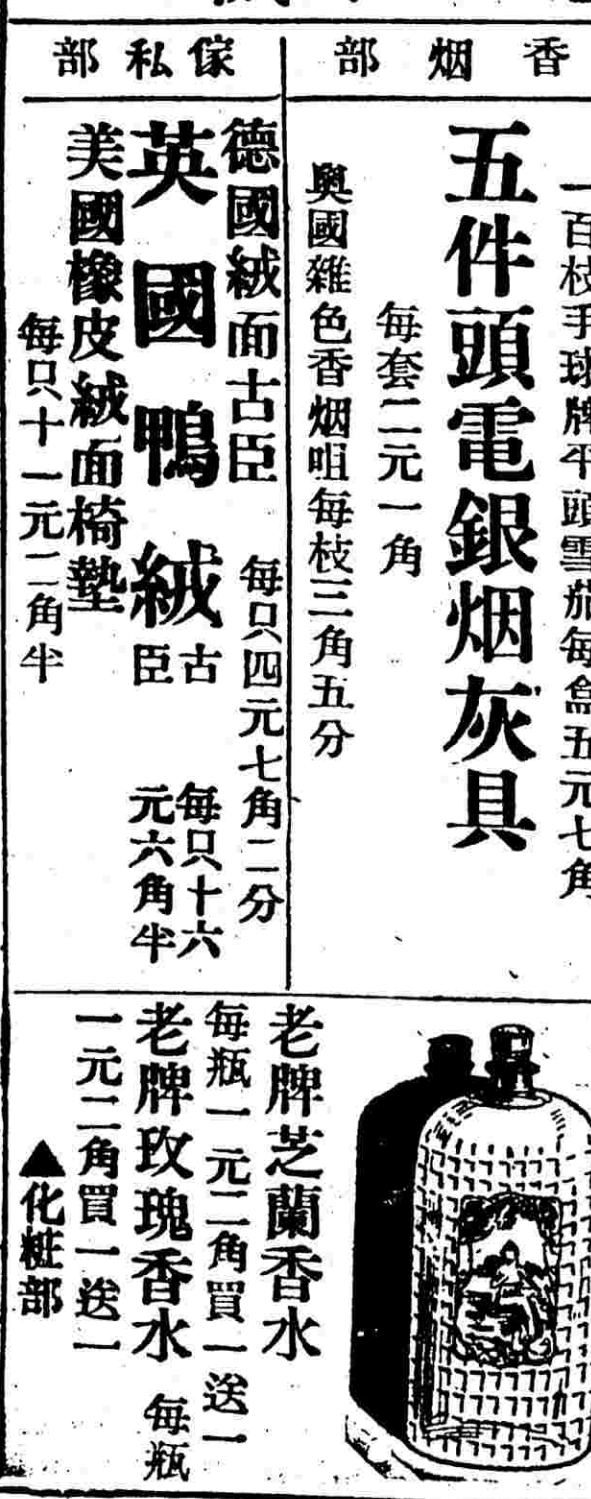 香烟部
一百枝手球牌平頭雪茄每盒五元七角
五件頭電銀烟灰具
每套二元一角
奧國雜色香烟咀每枝三角五分
傢私部
德國絨面古臣
每只四元七角二分
英國鴨絨古臣
每只十六元六角半
美國橡皮絨面椅墊
每只十一元二角半
老牌芝蘭香水
每瓶一元二角買一送一
老牌玫瑰香水 每瓶
一元二角買一送一
▲化粧部